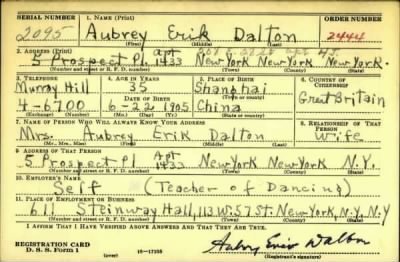 SERIAL NUMBER 1. NAME (Print) ORDER NUMBER
2095 Aubrey Erik Dalton 2444
(First) (Middle) (Last)
2. ADDRESS (Print)
5 Prospect Pl. apt 1433 New York New York New York.
(Number and street or R. F. D. number) (Town) (County) (State)
3. TELEPHONE 4. AGE IN YEARS 5. PLACE OF BIRTH 6. COUNTRY OF CITIZENSHIP
Murray Hill 35 Shanghai
4-6700 6-22-1905 China Great Britain
(Exchange) (Number) (Mo.) (Day) (Yr.) (State or country)
7. NAME OF PERSON WHO WILL ALWAYS KNOW YOUR ADDRESS 8. RELATIONSHIP OF THAT PERSON
Mrs. Aubrey Erik Dalton Wife
(Mr., Mrs., Miss) (First) (Middle) (Last)
9. ADDRESS OF THAT PERSON
5 Prospect Pl Apt 1433 New York New York N.Y.
(Number and street or R. F. D. number) (Town) (County) (State)
10. EMPLOYER'S NAME
Self (Teacher of Dancing)
11. PLACE OF EMPLOYMENT OR BUSINESS
611 Steinway Hall, 113 W. 57 St. New York, N.Y. N.Y
(Number and street or R. F. D. number) (Town) (County) (State)
I AFFIRM THAT I HAVE VERIFIED ABOVE ANSWERS AND THAT THEY ARE TRUE.
REGISTRATION CARD
D. S. S. Form 1 (over) 16-17105 Aubrey Erik Dalton
(Registrant's signature)